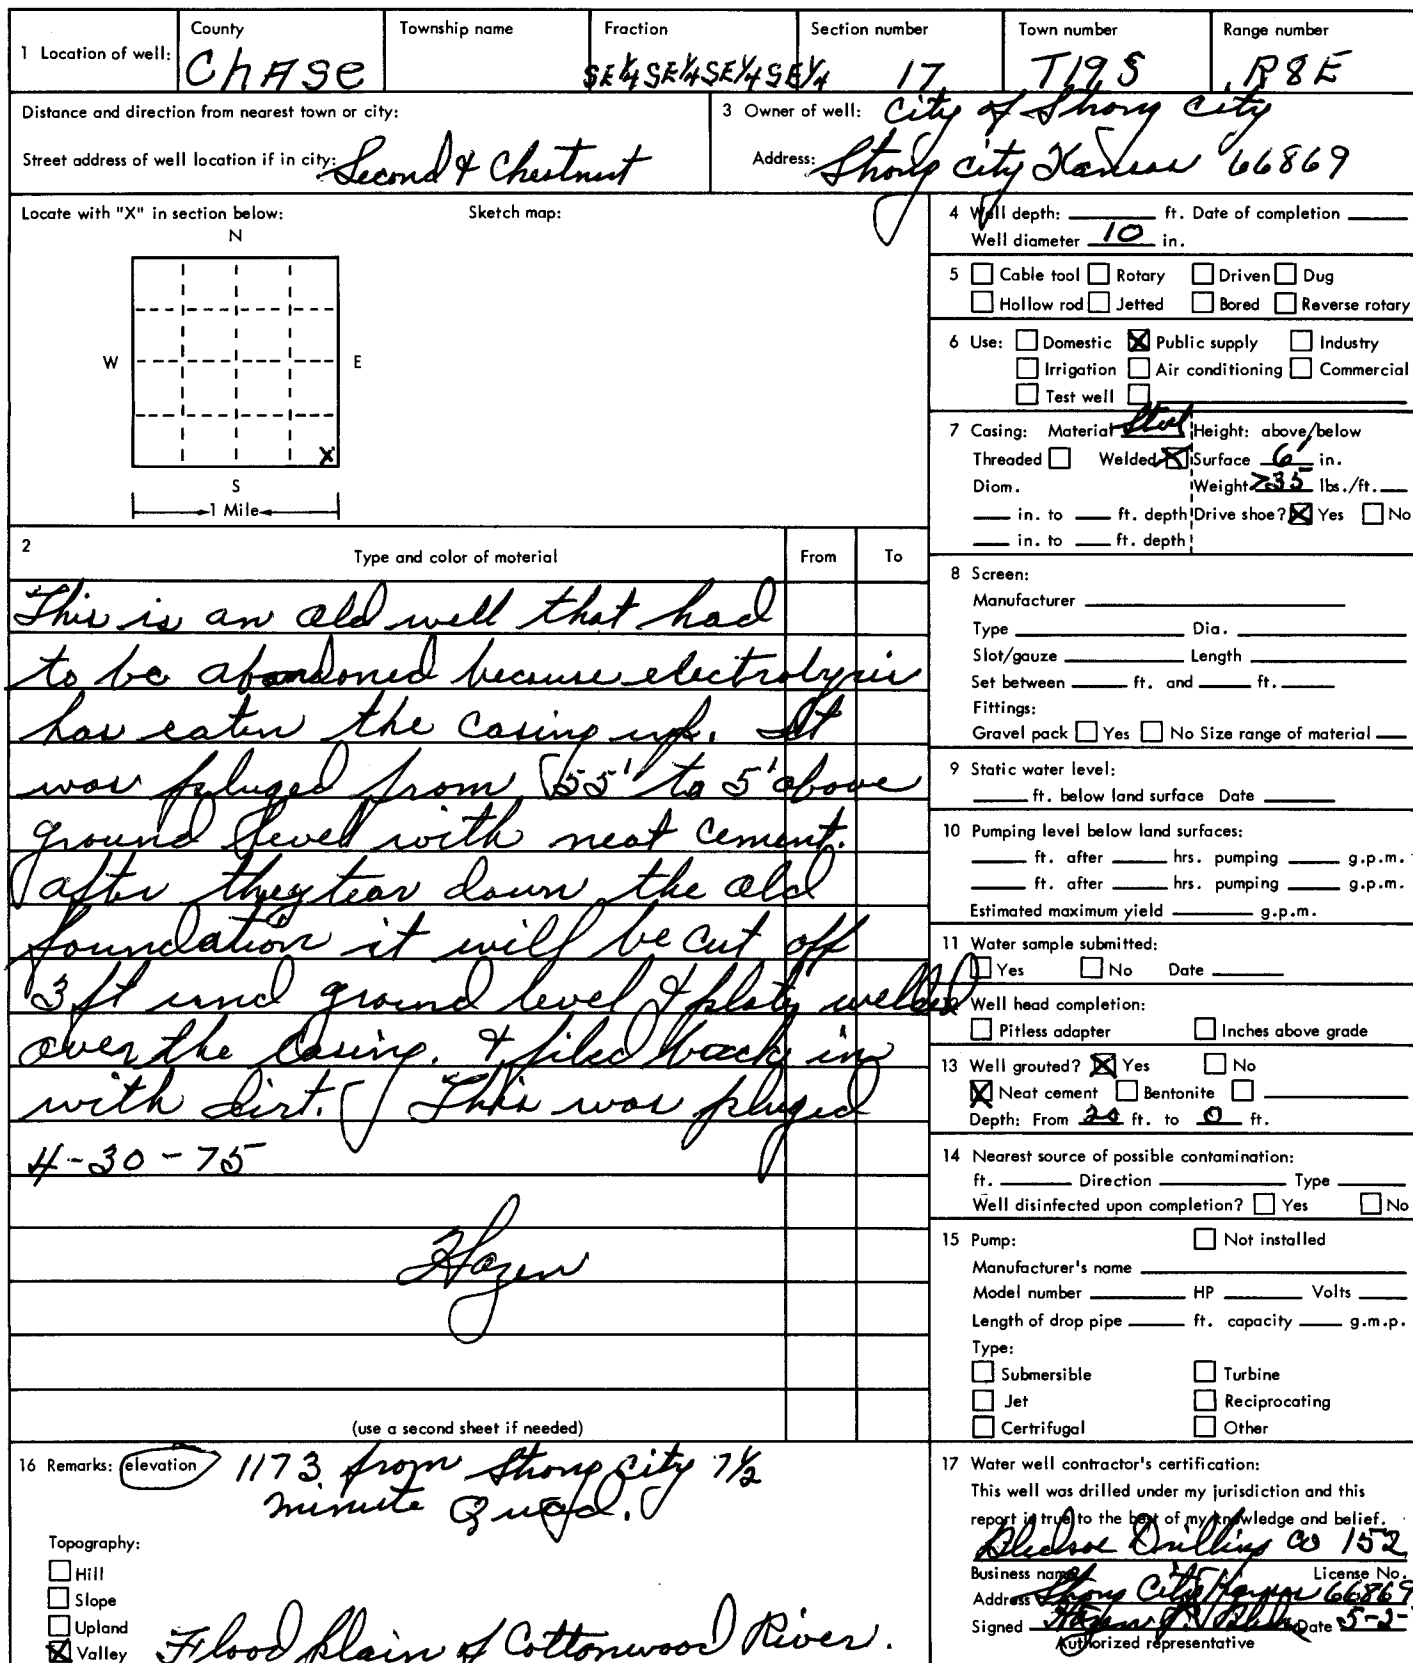 1 Location of well: County Township name Fraction Section number Town number Range number
ChASe SE 1/4 SE 1/4 SE 1/4 SE 1/4 17 T19S R8E
Distance and direction from nearest town or city:
Street address of well location if in city: Second & Chestnut
3 Owner of well: City of Strong City
Address: Strong City Kansas 66869
Locate with "X" in section below: Sketch map:
N
W E
X
S
1 Mile
4 Well depth: ft. Date of completion
Well diameter 10 in.
5 Cable tool Rotary Driven Dug
Hollow rod Jetted Bored Reverse rotary
6 Use: Domestic X Public supply Industry
Irrigation Air conditioning Commercial
Test well
7 Casing: Material Steel Height: above/below
Threaded Welded X Surface 6' in.
Diom. Weight >35 lbs./ft.
in. to ft. depth Drive shoe? X Yes No
in. to ft. depth
2 Type and color of material From To
This is an old well that had
to be abandoned because electrolysis
has eaten the casing up. It
was pluged from 55' to 5' above
ground level with neat cement.
after they tear down the old
foundation it will be cut off
3 ft und ground level & plate welded
over the casing. & filed back in
with dirt. This was pluged
4-30-75
Hazen
(use a second sheet if needed)
8 Screen:
Manufacturer
Type Dia.
Slot/gauze Length
Set between ft. and ft.
Fittings:
Gravel pack Yes No Size range of material
9 Static water level:
ft. below land surface Date
10 Pumping level below land surfaces:
ft. after hrs. pumping g.p.m.
ft. after hrs. pumping g.p.m.
Estimated maximum yield g.p.m.
11 Water sample submitted:
Yes No Date
12 Well head completion:
Pitless adapter Inches above grade
13 Well grouted? X Yes No
X Neat cement Bentonite
Depth: From 20 ft. to 0 ft.
14 Nearest source of possible contamination:
ft. Direction Type
Well disinfected upon completion? Yes No
15 Pump: Not installed
Manufacturer's name
Model number HP Volts
Length of drop pipe ft. capacity g.m.p.
Type:
Submersible Turbine
Jet Reciprocating
Certrifugal Other
16 Remarks: elevation 1173 from Strong City 7½
minute Quad.
Topography:
Hill
Slope
Upland
X Valley Flood plain of Cottonwood River.
17 Water well contractor's certification:
This well was drilled under my jurisdiction and this
report is true to the best of my knowledge and belief.
Bledsoe Drilling Co 152
Business name License No.
Address Strong City Kansas 66869
Signed Hazen Date 5-2-
Authorized representative